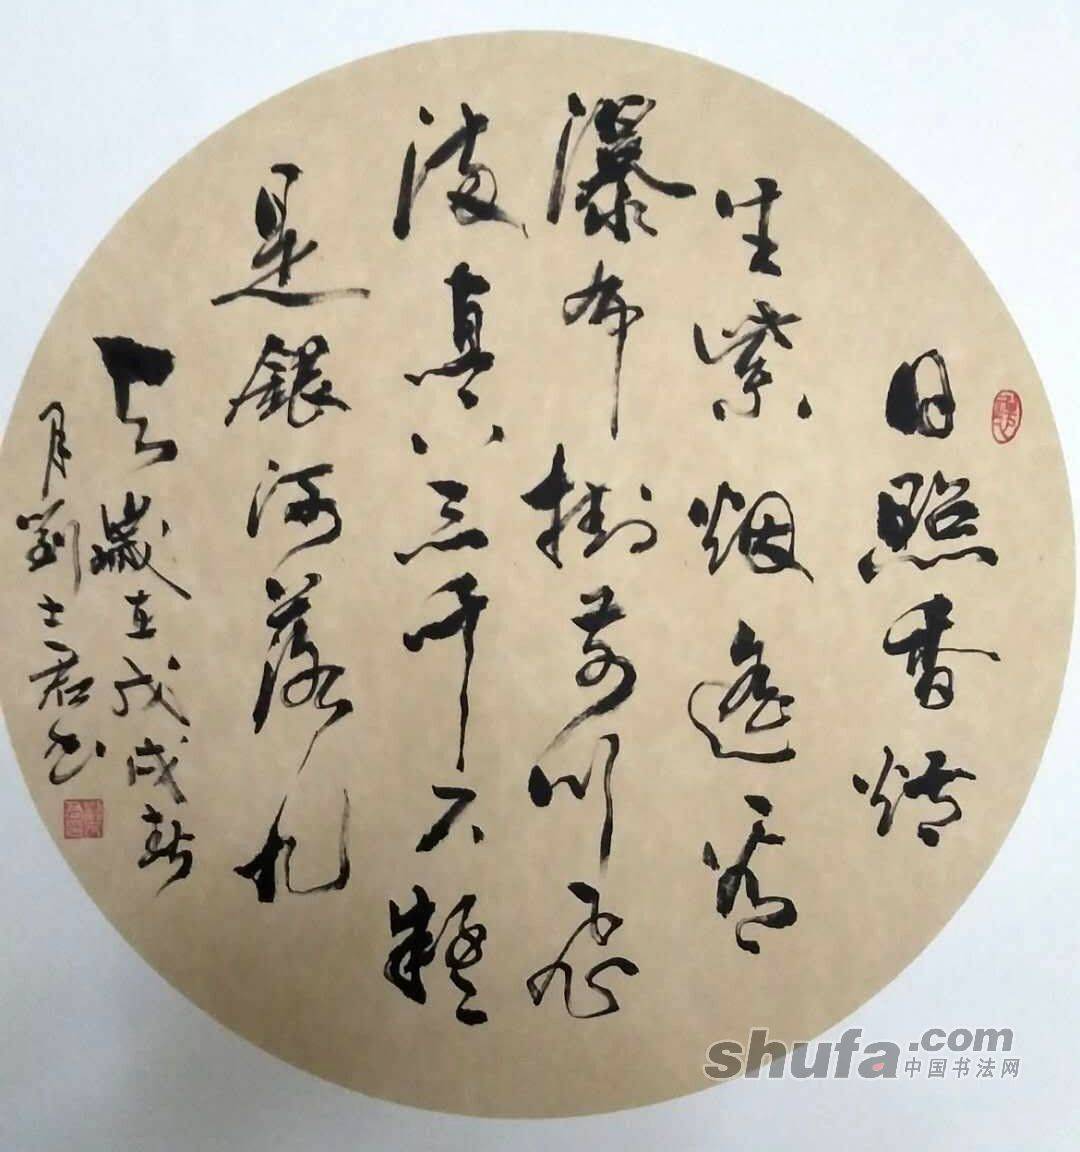 日照香爐
生紫烟遥看
瀑布掛前川飛
流直下三千尺疑
是銀河落九
天歲在戊戌春
月劉士君书
shufa.com
中国书法网